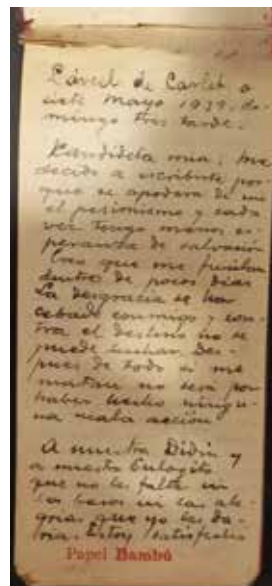 Cárcel de Carlet a
siete Mayo 1939. do-
mingo tres tarde.
Kandideta mia: me
decido a escribirte por-
que se apodera de mi
el pesimismo y cada
vez tengo menos es-
peranza de salvación
Creo que me fusilan
dentro de pocos dias
La desgracia se ha
cebado conmigo y con-
tra el destino no se
puede luchar. Des-
pues de todo si me
matan no será por
haber hecho ningu-
na mala acción
A nuestra Didin y
a nuestro Eulogito
que no les falte ni
los besos ni las ale-
grias que yo les da-
ria. Estoy satisfecho
Papel Bambú